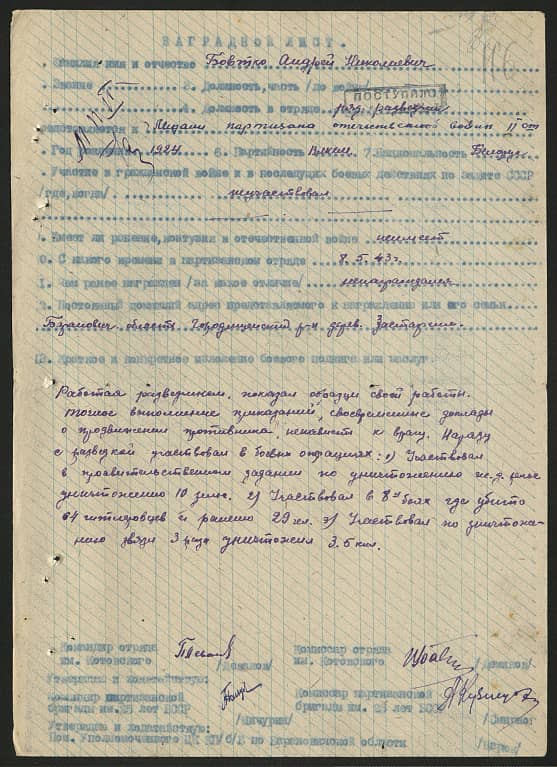 НАГРАДНОЙ ЛИСТ.
116
Фамилия имя и отчество Бовтко Андрей Николаевич
2. Звание 3. Должность, часть /до войны/
ПОСТУПИЛО
4. Должность в отряде ряд. разведчик
Медали партизана отечественной войны II ст
5. Год рождения 1924 6. Партийность Влксм 7. Национальность Белорус
Участие в гражданской войне и в последующих боевых действиях по защите СССР
/где, когда/ неучаствовал
Имеет ли ранение, контузии в отечественной войне неимеет
0. С какого времени в партизанском отряде 8.5.43г.
I. Чем ранее награжден /за какое отличие/ ненаграждался
2. Постоянный домашний адрес представляемого к награждению или его семьи.
Баранович область Городищенский р-н дерев.
13. Краткое и конкретное изложение боевого подвига или заслуг.
Работая разведчиком, показал образцы своей работы.
Точное выполнение приказаний, своевременные доклады
о продвижении противника, ненависть к врагу. Наряду
с разведкой участвовал в боевых операциях: 1) Участвовал
в правительственном задании по уничтожению ж.д.
уничтожению 10 2) Участвовал в 8ми боях где убито
64 гитлеровцев и ранено 29 чел. 3) Участвовал по уничтоже-
нию связи 3 раза уничтожил 3.5 клм.
Командир отряда Комиссар отряда
им. Котовского им. Котовского
Утверждаю и ходатайствую:
Командир партизанской Комиссар партизанской
бригады им. 25 лет БССР /Мичурин/ бригады им. 25 лет БССР /Смирнов/
Утверждаю и ходатайствую:
Пом. Уполномоченного ЦК КП/б/Б по Барановичской области